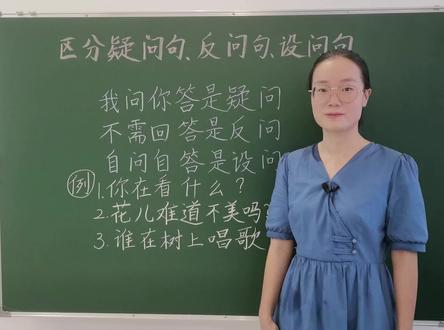 区分疑问句、反问句、设问句
我问你答是疑问
不需回答是反问
自问自答是设问
例 1.你在看什么？
2.花儿难道不美吗?
3.谁在树上唱歌